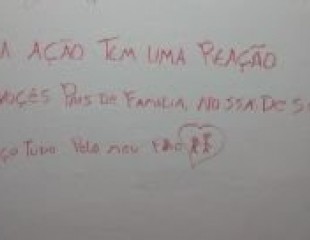 A AÇÃO TEM UMA REAÇÃO
VOCÊS PAIS DE FAMILIA, NOSSA DE S
ÇO TUDO PELO MEU